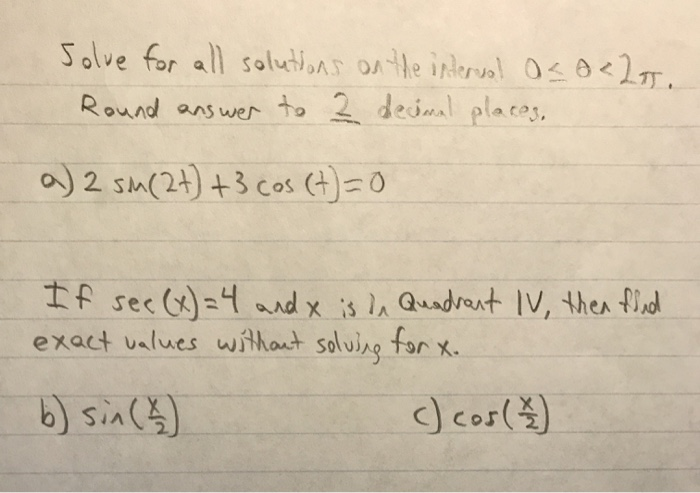 Solve for all solutions on the interval 0 ≤ θ < 2π.
Round answer to 2 decimal places.
a) 2 sin(2t) + 3 cos (t) = 0
If sec(x) = 4 and x is in Quadrant IV, then find
exact values without solving for x.
b) sin(x/2) c) cos(x/2)